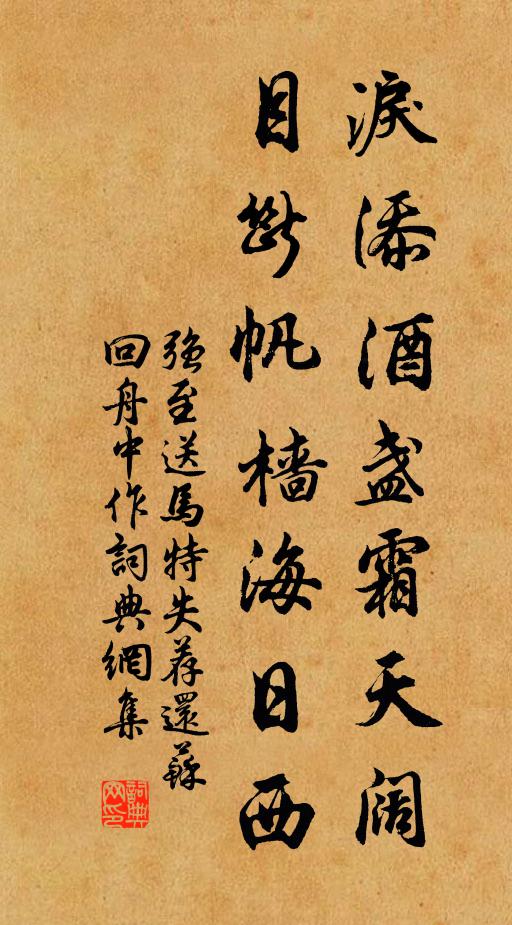 淚添酒盞霜天闊
目斷帆檣海日西
强至送馬特失荐還蘇
回舟中作詞典網集
詞典网印